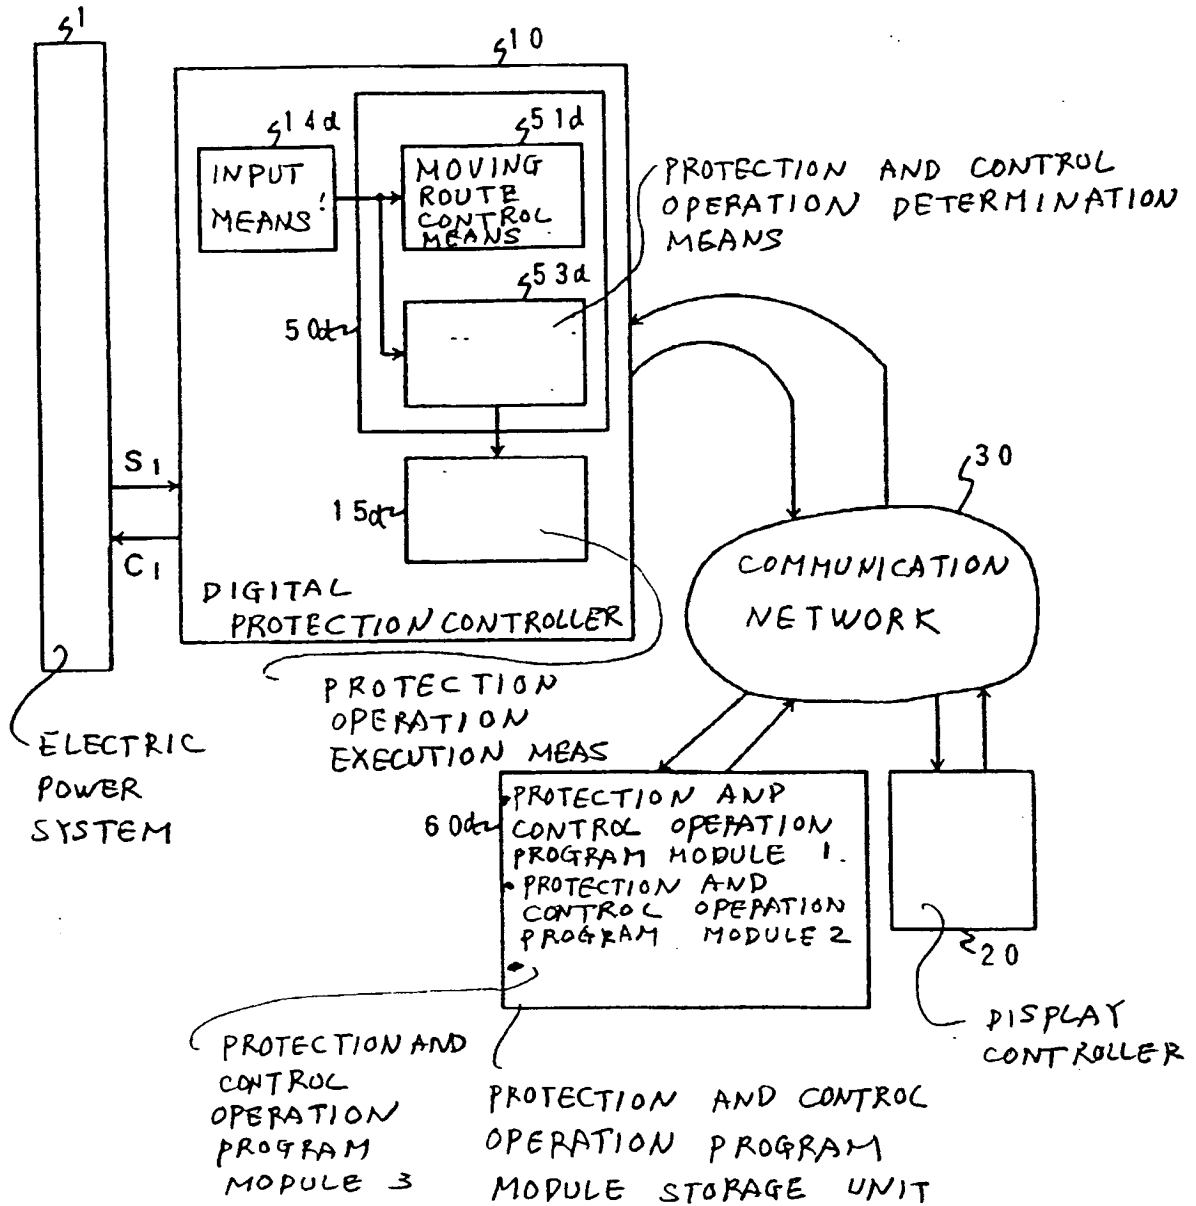 1
10
14d
51d
INPUT
MEANS
MOVING
ROUTE
CONTROL
MEANS
PROTECTION AND CONTROL
OPERATION DETERMINATION
MEANS
53d
50d
S1
C1
15d
30
COMMUNICATION
NETWORK
DIGITAL
PROTECTION CONTROLLER
PROTECTION
OPERATION
EXECUTION MEAS
ELECTRIC
POWER
SYSTEM
60d
PROTECTION AND
CONTROL OPERATION
PROGRAM MODULE 1.
PROTECTION AND
CONTROL OPERATION
PROGRAM MODULE 2
20
DISPLAY
CONTROLLER
PROTECTION AND
CONTROL
OPERATION
PROGRAM
MODULE 3
PROTECTION AND CONTROL
OPERATION PROGRAM
MODULE STORAGE UNIT